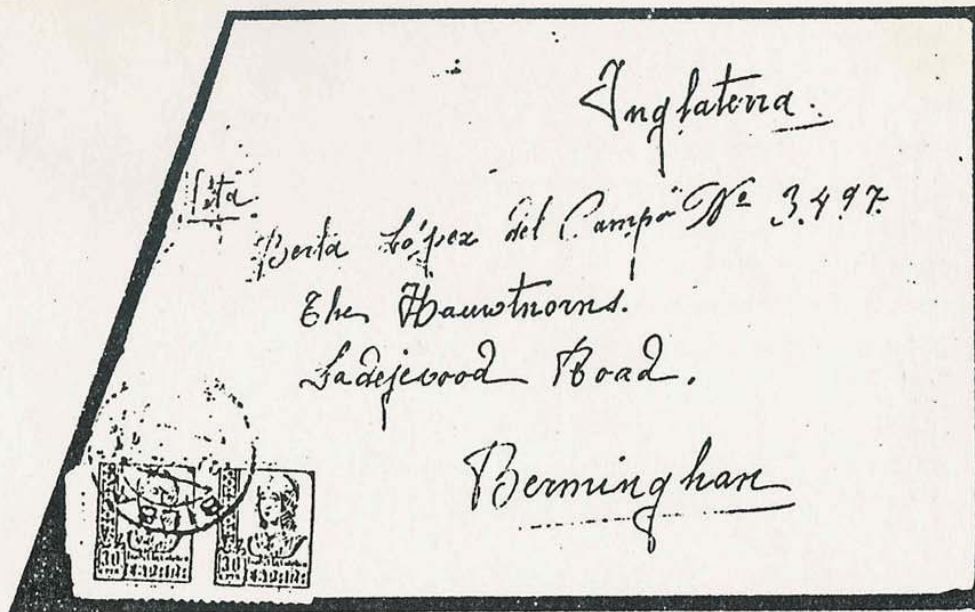 Inglaterra.
Srta
Berta López del Campo Nº 3.497.
The Hauwthorns.
Ladejewood Road.
Berminghan
30 30
ESPAÑA ESPAÑA